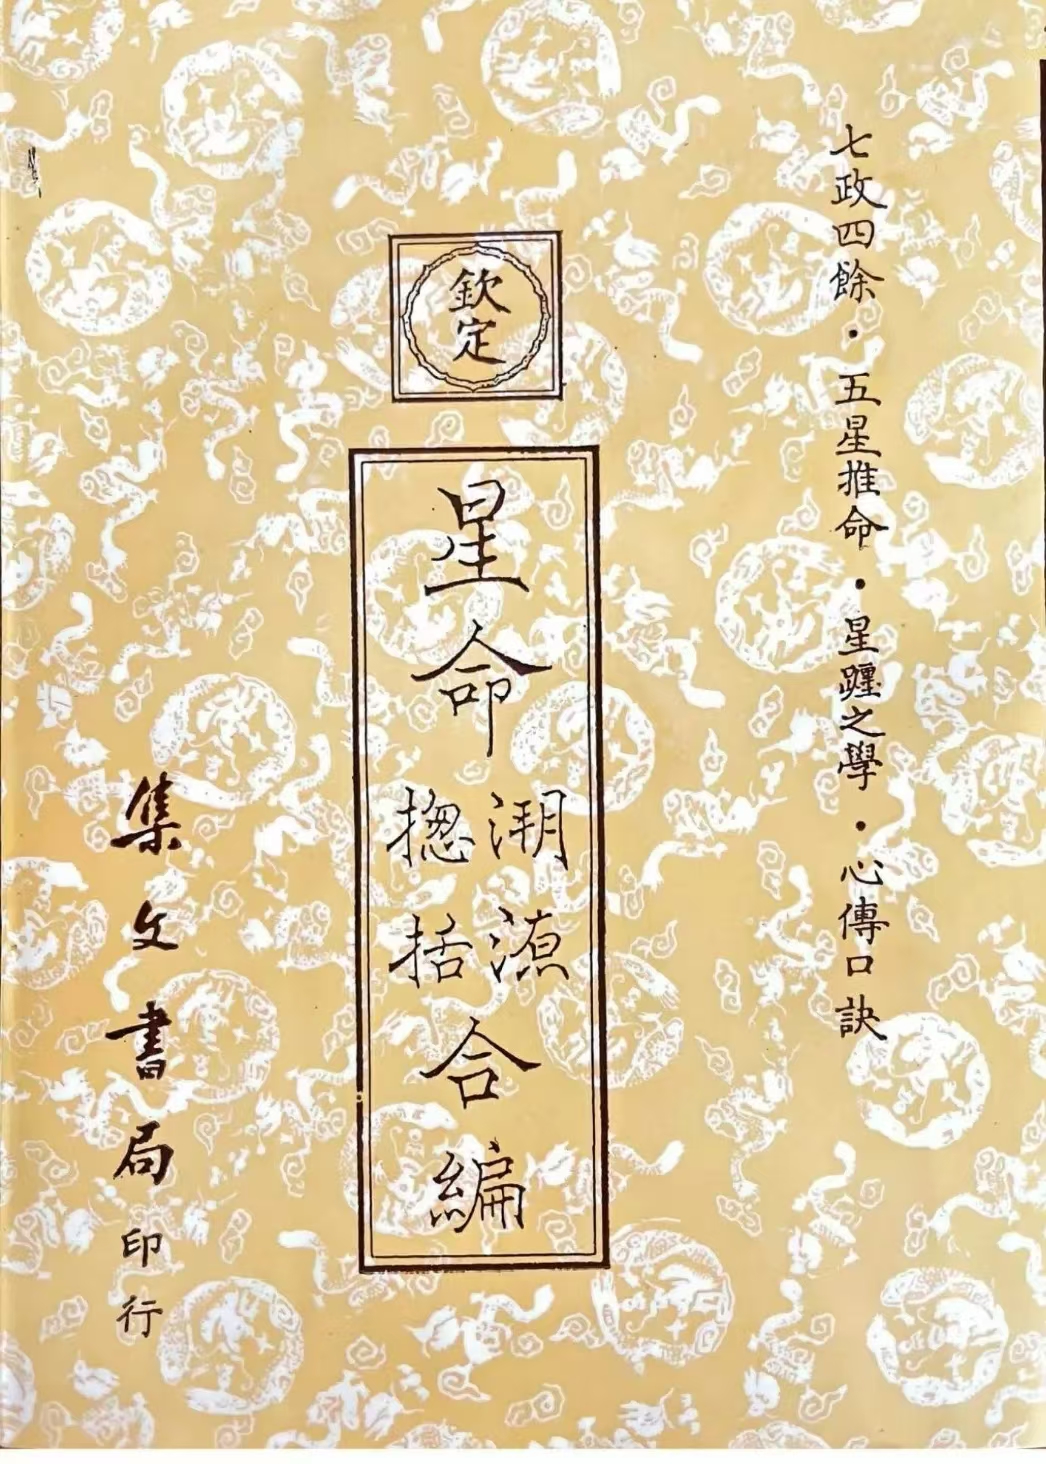 七政四餘・五星推命・星躔之學・心傳口訣
欽定
星命
溯源
摠括
合編
集文書局印行